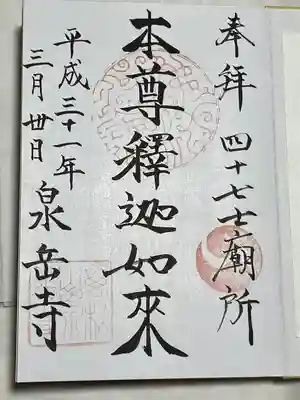 奉拝 四十七士廟所
本尊釋迦如來
平成三十一年
三月卅日
泉岳寺